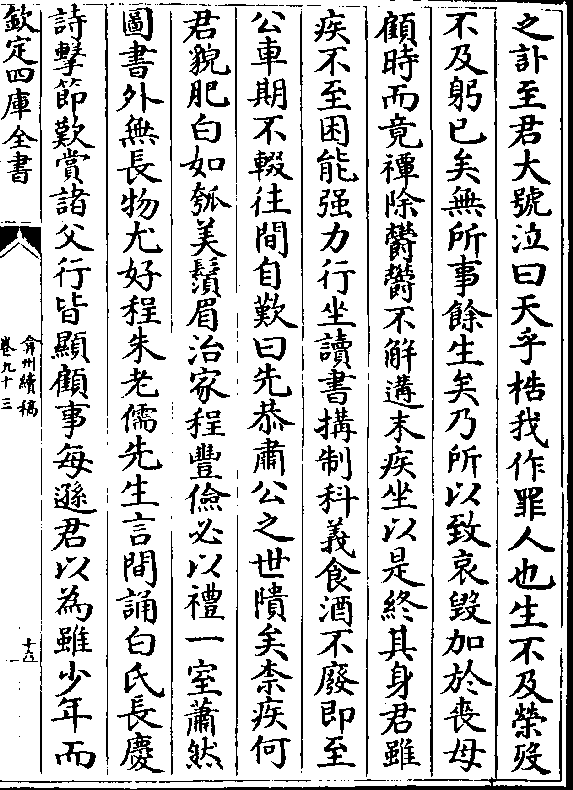 之訃至君大號泣曰天乎梏我作罪人也生不及榮歿
不及躬已矣無所事餘生矣乃所以致哀毀加於喪母
顧時而竟禫除欝欝不解遘末疾坐以是終其身君雖
疾不至困能强力行坐讀書搆制科義食酒不廢即至
公車期不輟往間自歎曰先恭肅公之世隤矣柰疾何
君貌肥白如瓠美鬚眉治家程豐儉必以禮一室蕭然
圖書外無長物尤好程朱老儒先生言間誦白氏長慶
詩擊節歎賞諸父行皆顯顧事每遜君以為雖少年而
欽定四庫全書
弇州續稿
卷九十三
十六